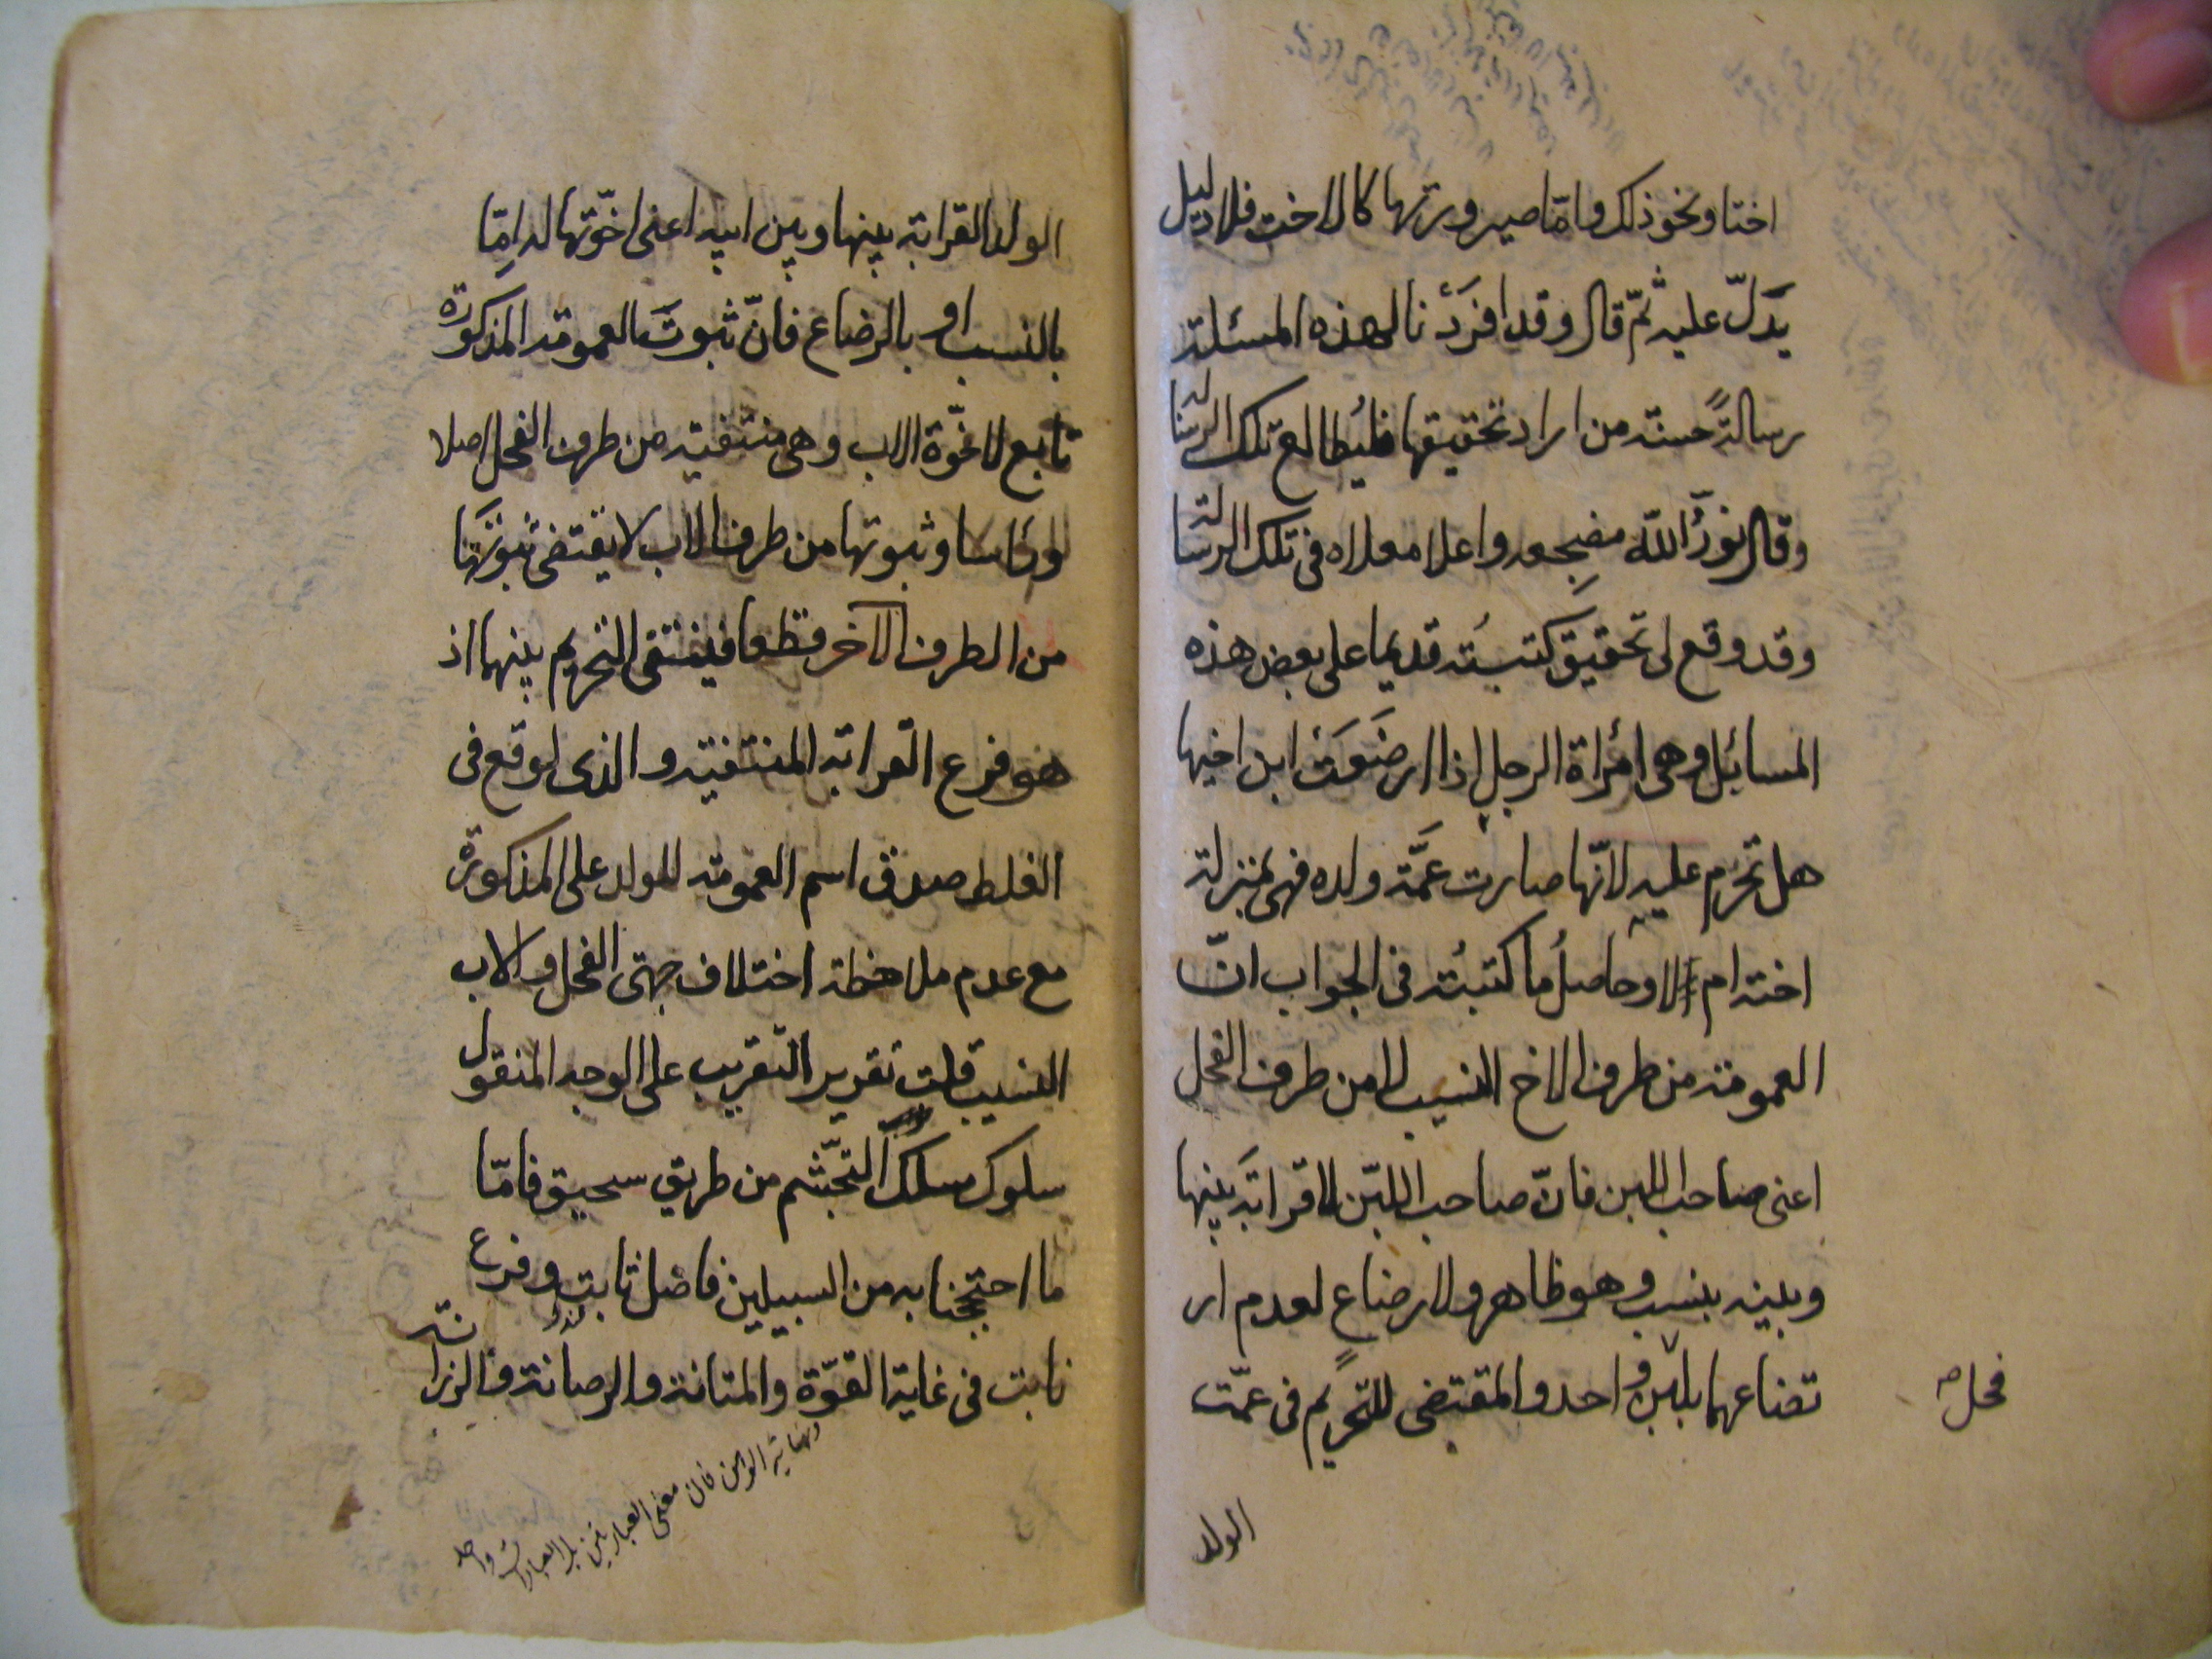 اختا ونحو ذلك واما صيرورتها كالاخت فلا دليل
يدلّ عليه ثمّ قال وقد افردنا لهذه المسئلة
رسالةً حسنة من اراد تحقيقها فليُطالع تلك الرسالة
وقال نوّر اللّه مضجعه واعلا معلاه فى تلك الرسالة
وقد وقع لى تحقيق كتبتُه قديما على بعض هذه
المسائل وهى امرأة الرجل اذا ارضَعَت ابن اخيها
هل تحرم عليه لانّها صارت عمّة ولده فهى بمنزلة
اخته ام لا وحاصلُ ما كتبتُه فى الجواب انّ
العمومة من طرف الاخ النسيب لا من طرف الفحل
اعنى صاحب اللبن فانّ صاحب اللبن لا قرابةَ بينها
وبينه بنسب وهو ظاهر ولا رضاعٍ لعدم ار
تضاعهما بلبن واحد والمقتضى للتحريم فى عمّة
فحل صح
الولد
الولد القرابة بينها وبين ابيه اعنى اخوّتها له امّا
بالنسب او بالرضاع فانّ ثبوتَ العمومة المذكورة
تابع لاخوّة الاب وهى منتفية من طرف الفحل اصلا
ورأسا وثبوتها من طرف الاب لا يقتضى ثبوتَها
من الطرف الآخر قطعا فينتفى التحريم بينهما اذ
هو فرع القرابة المنتفية والذى اوقع فى
الغلط صدق اسم العمومة للولد على المذكورة
مع عدم ملاحظة اختلاف جهتى الفحل والاب
النسيب قلت تقرير التقريب على الوجه المنقول
سلوك مسلك التجشّم من طريق سحيق فامّا
ما احتججنا به من السبيلين فاصل ثابت وفرع
نابت فى غاية القوّة والمتانة والرصانة والرزانة
ونهاية الوهن فان معنى العبارتين
واحد